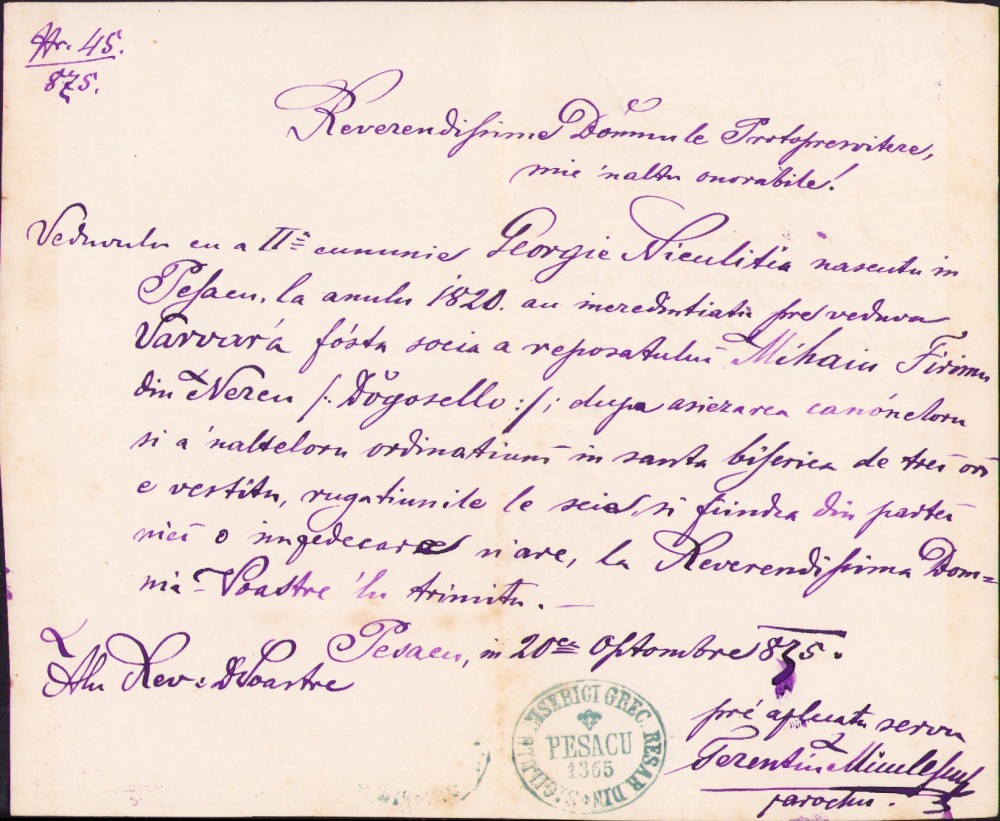 Nr. 45.
875.
Reverendissime Dómnule Protopresvitere,
mie 'naltu onorabile!
Veduvulu cu a IIa cununie Georgie Niculitia nascutu in
Pesacu, la anulu 1820. au incredintiatu pre veduva
Varvará fósta socia a reposatului Mihaiu Firimu
din Nereu /: Dŏgosello :/; dupa asiezarea canóneloru
si a 'nalteloru ordinatiuni in santa biserica de trei ori
e vestitu, rugatiunile le scie, si fiindca din partea
nici o impedecare n'are, la Reverendissima Dom=
nia-Voastre 'lu trimitu. —
Pesacu, in 20ea Optombre 875.
Alu Rev. DVoastre
pré aplecatu servu
Terentiu Miculescu
parochu.
SIGILULU BISERICI GREC. RESAR. DIN
PESACU
1365